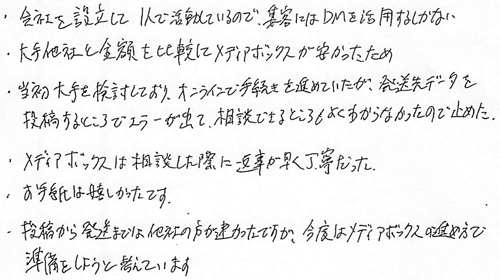 ・会社を設立して1人で活動しているので、集客にはDMを活用するしかない
・大手他社と金額を比較してメディアボックスが安かったため
・当初大手を検討しており、オンラインで手続きを進めていたが、発送先データを
投稿するところでエラーが出て、相談できるところもよくわからなかったので止めた。
・メディアボックスは相談した際に返事が早く丁寧だった。
・お手紙は嬉しかったです。
・投稿から発送までは他社の方が速かったですが、今度はメディアボックスの進め方で
準備をしようと考えています